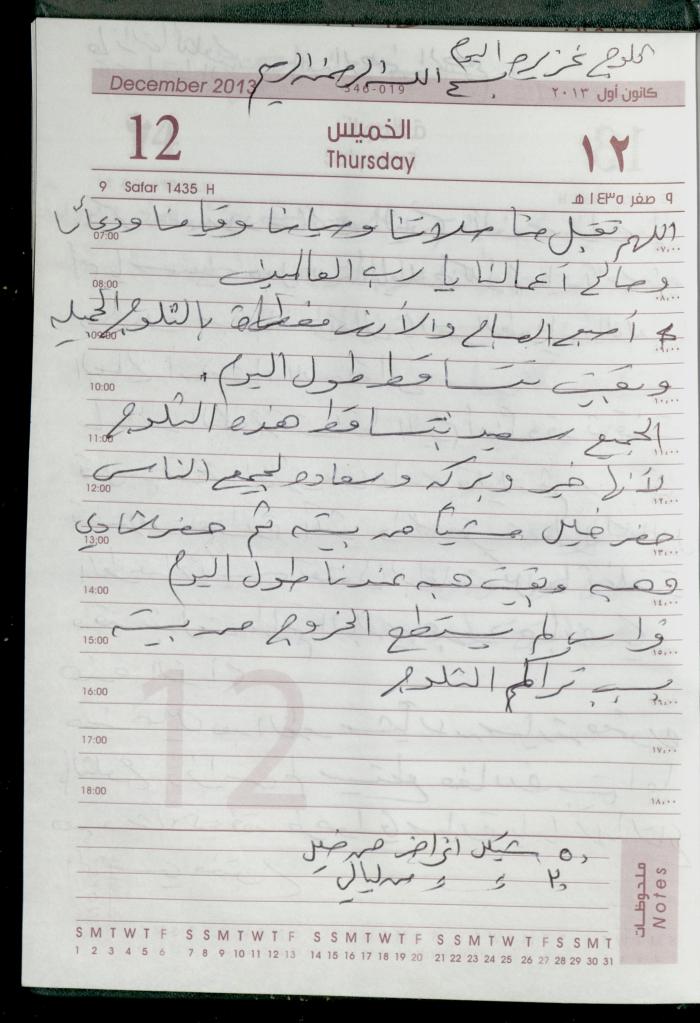 الثلوج غزيره اليوم
بسم الله الرحمن الرحيم
December 2013
346-019
كانون أول ٢٠١٣
12
الخميس
Thursday
١٢
9 Safar 1435 H
٩ صفر ١٤٣٥ هـ
اللهم تقبل منا صلاتنا وصيامنا وقيامنا ودعائنا
07:00 ٠٧,٠٠
وصالح أعمالنا يا رب العالمين
08:00 ٠٨,٠٠
أصبح الصباح والأرض مغطاة بالثلوج الجميله
09:00 ٠٩,٠٠
وبقيت تتساقط طول اليوم .
10:00 ١٠,٠٠
الجميع سعيد بتساقط هذه الثلوج
11:00 ١١,٠٠
لأنها خير وبركه وسعاده لجميع الناس
12:00 ١٢,٠٠
حضر خليل مشياً من بيته ثم حضر شادي
13:00 ١٣,٠٠
وهبه وبقيت هبه عندنا طول اليوم
14:00 ١٤,٠٠
فراس لم يستطع الخروج من بيته
15:00 ١٥,٠٠
بسبب تراكم الثلوج
16:00 ١٦,٠٠
12
17:00 ١٧,٠٠
18:00 ١٨,٠٠
٥٠ شيكل اغراض من خليل
٢٠ ء ء من ليالي
ملحوظات
Notes
S M T W T F S S M T W T F S S M T W T F S S M T W T F S S M T
1 2 3 4 5 6 7 8 9 10 11 12 13 14 15 16 17 18 19 20 21 22 23 24 25 26 27 28 29 30 31